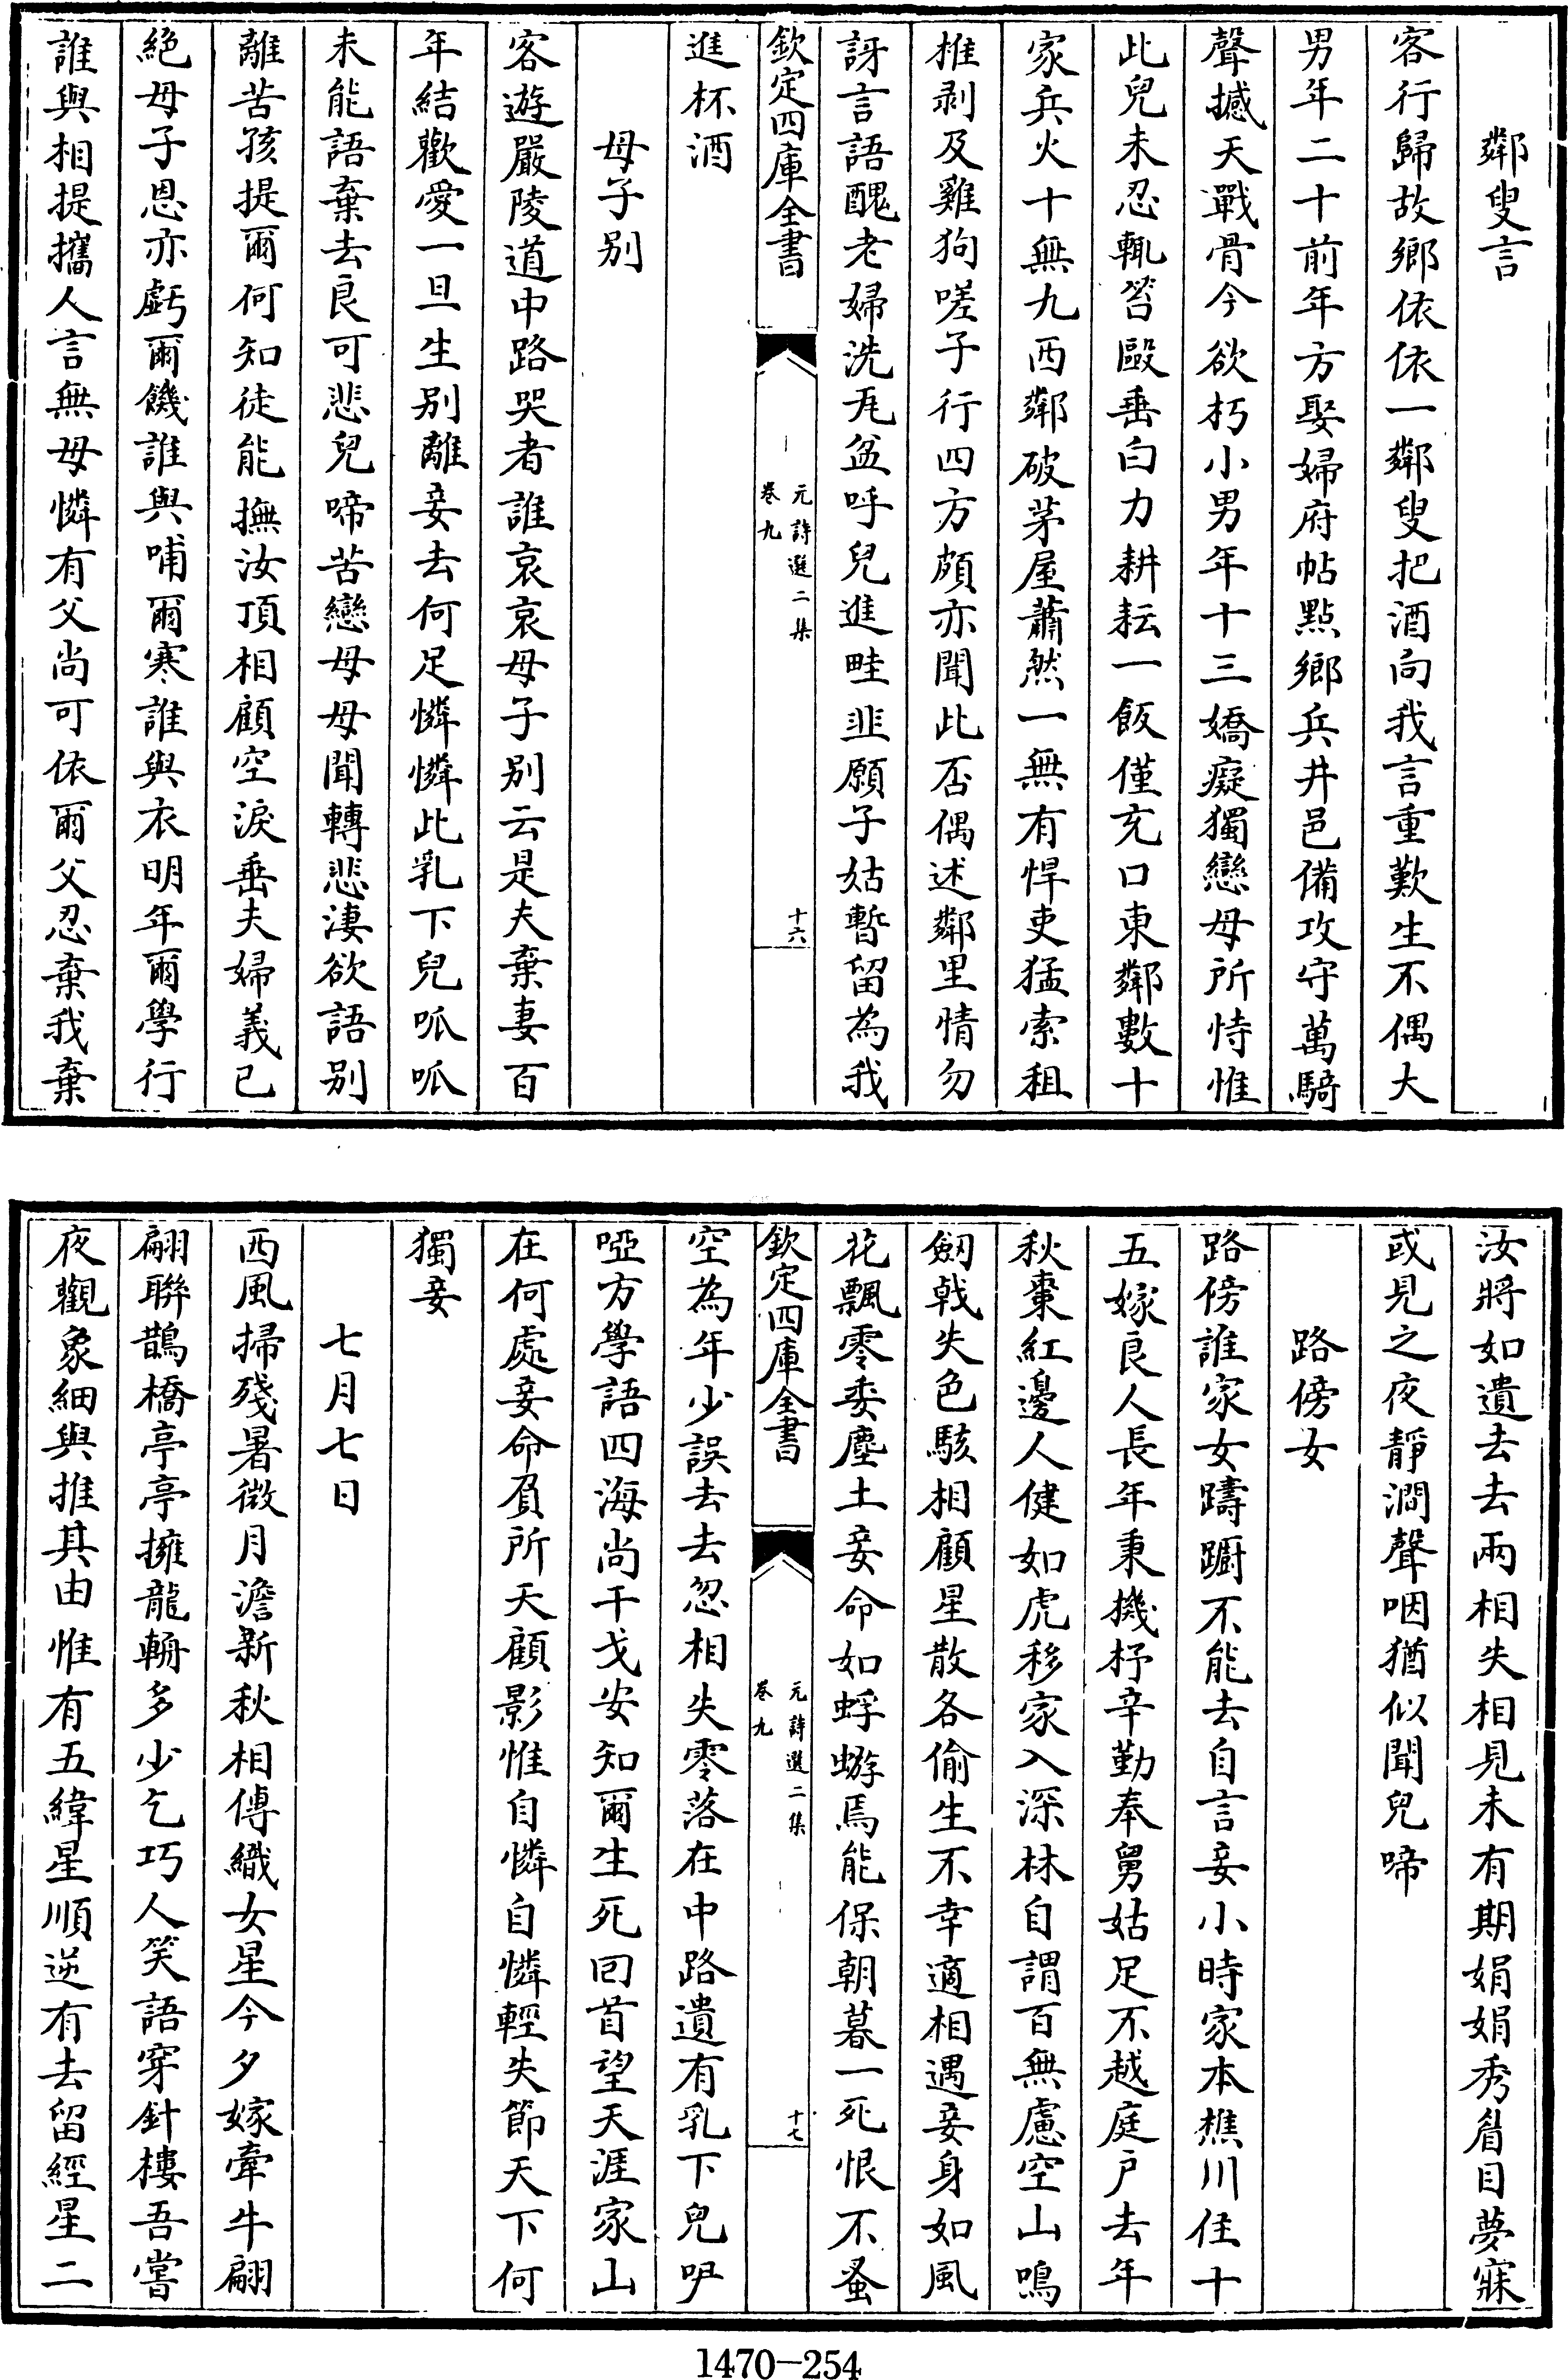 鄰叟言
客行歸故鄉依依一鄰叟把酒向我言重歎生不偶大
男年二十前年方娶婦府帖點鄉兵井邑備攻守萬騎
聲撼天戰骨今欲朽小男年十三嬌癡獨戀母所恃惟
此兒未忍輒笞毆垂白力耕耘一飯僅充口東鄰數十
家兵火十無九西鄰破茅屋蕭然一無有悍吏猛索租
椎剥及雞狗嗟子行四方頗亦聞此否偶述鄰里情勿
訝言語醜老婦洗瓦盆呼兒進畦韭願子姑暫留為我
欽定四庫全書
元詩選二集
卷九
十六
進杯酒
母子别
客遊嚴陵道中路哭者誰哀哀母子别云是夫棄妻百
年結歡愛一旦生别離妾去何足憐憐此乳下兒呱呱
未能語棄去良可悲兒啼苦戀母母聞轉悲淒欲語别
離苦孩提爾何知徒能撫汝頂相顧空淚垂夫婦義已
絶母子恩亦虧爾饑誰與哺爾寒誰與衣明年爾學行
誰與相提攜人言無母憐有父尚可依爾父忍棄我棄
汝將如遺去去兩相失相見未有期娟娟秀眉目夢寐
或見之夜靜澗聲咽猶似聞兒啼
路傍女
路傍誰家女躊躕不能去自言妾小時家本樵川住十
五嫁良人長年秉機杼辛勤奉舅姑足不越庭户去年
秋棗紅邊人健如虎移家入深林自謂百無慮空山鳴
劒戟失色駭相顧星散各偷生不幸適相遇妾身如風
花飄零委塵土妾命如蜉蝣焉能保朝暮一死恨不蚤
欽定四庫全書
元詩選二集
卷九
十七
空為年少誤去去忽相失零落在中路遺有乳下兒吚
啞方學語四海尚干戈安知爾生死回首望天涯家山
在何處妾命負所天顧影惟自憐自憐輕失節天下何
獨妾
七月七日
西風掃殘暑微月澹新秋相傳織女星今夕嫁牽牛翩
翩聯鵲橋亭亭擁龍輈多少乞巧人笑語穿針樓吾嘗
夜觀象細與推其由惟有五緯星順逆有去留經星二
1470-254